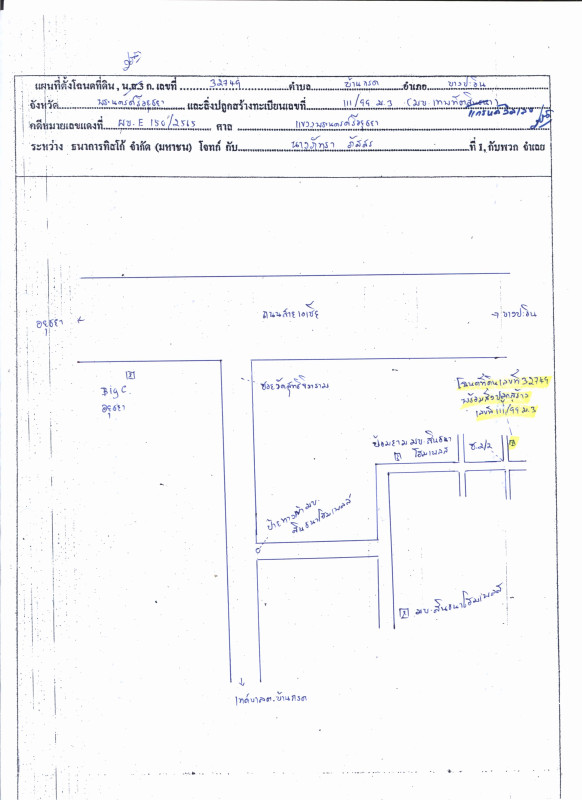 แผนที่ตั้งโฉนดที่ดิน, น.ส.3 ก. เลขที่ 32749 ตำบล บ้านกรด อำเภอ บางปะอิน
จังหวัด พระนครศรีอยุธยา และสิ่งปลูกสร้างทะเบียนเลขที่ 111/99 ม.3 (มบ.
คดีหมายเลขแดงที่ ผบ.E 150/2565 ศาล แขวงพระนครศรีอยุธยา
ระหว่าง ธนาคารทิสโก้ จำกัด (มหาชน) โจทก์ กับ นางภัทรา ที่ 1, กับพวก จำเลย
ถนนสายเอเชีย
อยุธยา
บางปะอิน
Big C
อยุธยา
โฉนดที่ดินเลขที่ 32749
พร้อมสิ่งปลูกสร้าง
เลขที่ 111/99 ม.3
ป้อมยาม มบ. สินธนา
โฮมเพลส
ซ.2/2
ป้ายทางเข้า มบ.
สินธนาโฮมเพลส
มบ.สินธนาโฮมเพลส
เทศบาลต.บ้านกรด